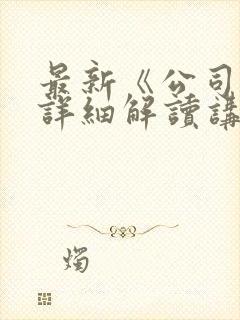 最新《公司
詳細解讀講
燭